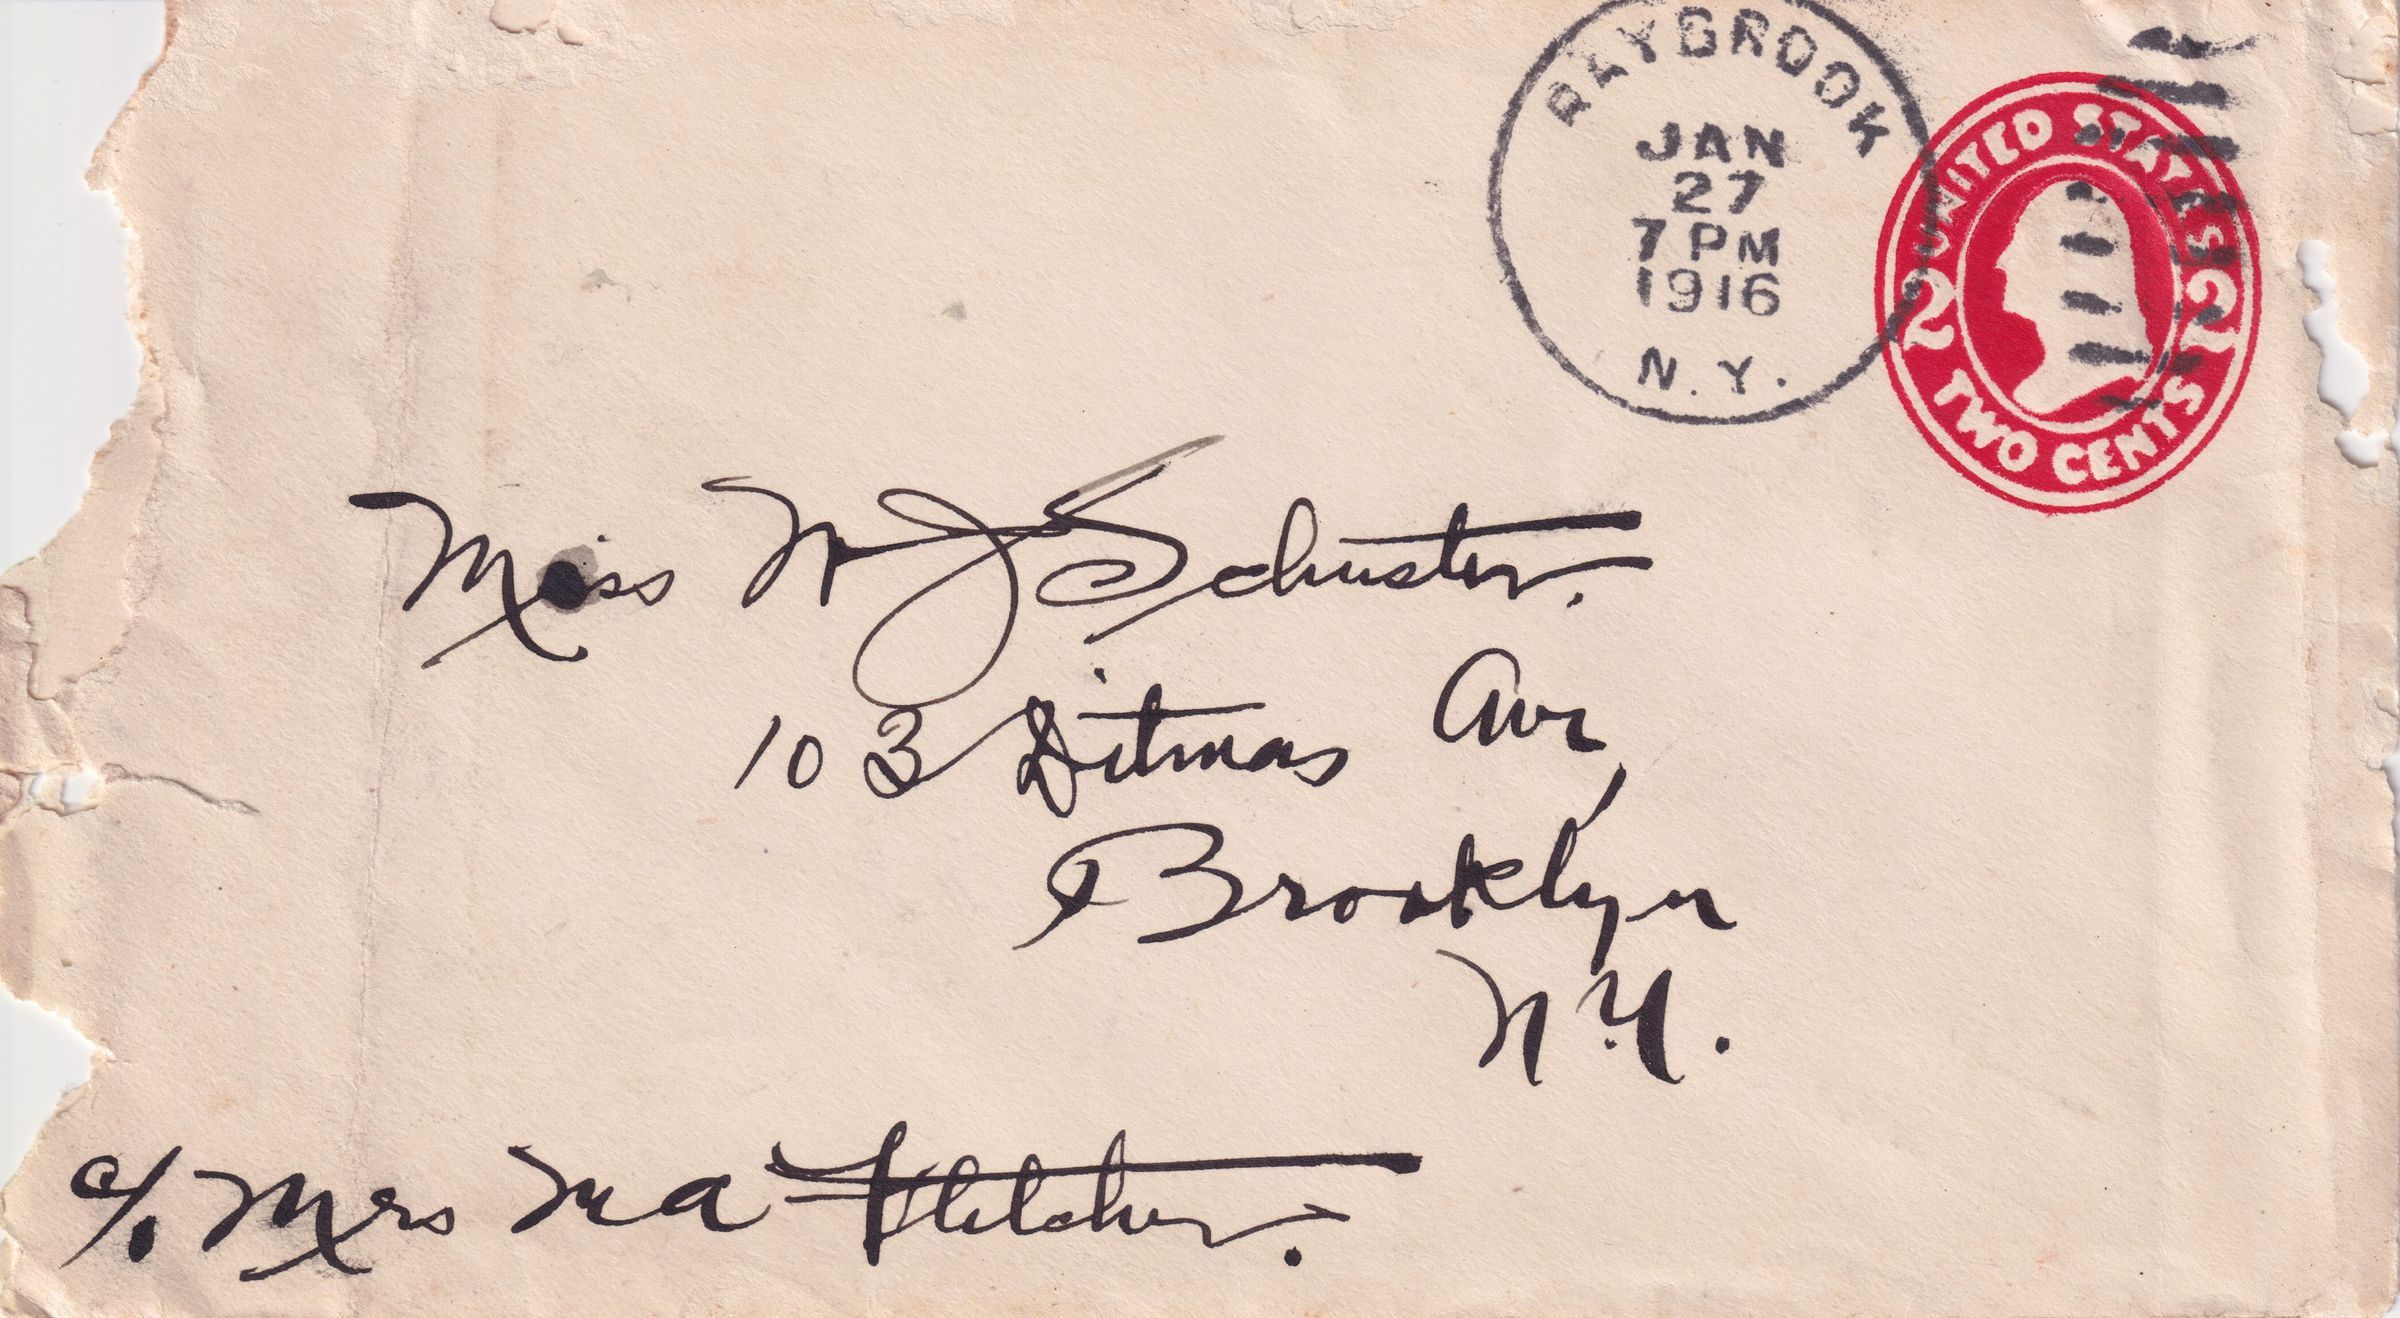 RAYBROOK
JAN
27
7 PM
1916
N.Y.
UNITED STATES
2 2
TWO CENTS
Miss W J Schuster.
103 Ditmas Ave,
Brooklyn
N.Y.
c/. Mrs M A Fletcher.